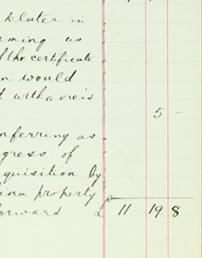 later in
rming us
the certificate
n would
t with a view
5 -
nferring as
gress of
quisition by
ina property
forward £ 11 19 8